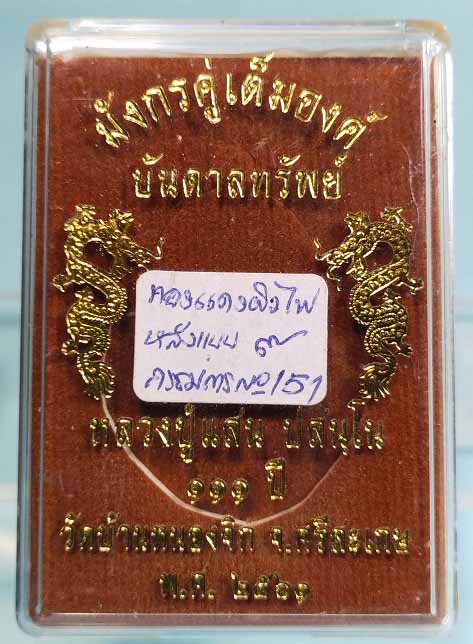 มังกรคู่เต็มองค์
บันดาลทรัพย์
ทองแดงผิวไฟ
หลังแบบ ๙
กรรมการ№151
หลวงปู่แสน ปสนฺโน
๑๑๑ ปี
วัดบ้านหนองจิก จ.ศรีสะเกษ
พ.ศ. ๒๕๖๑